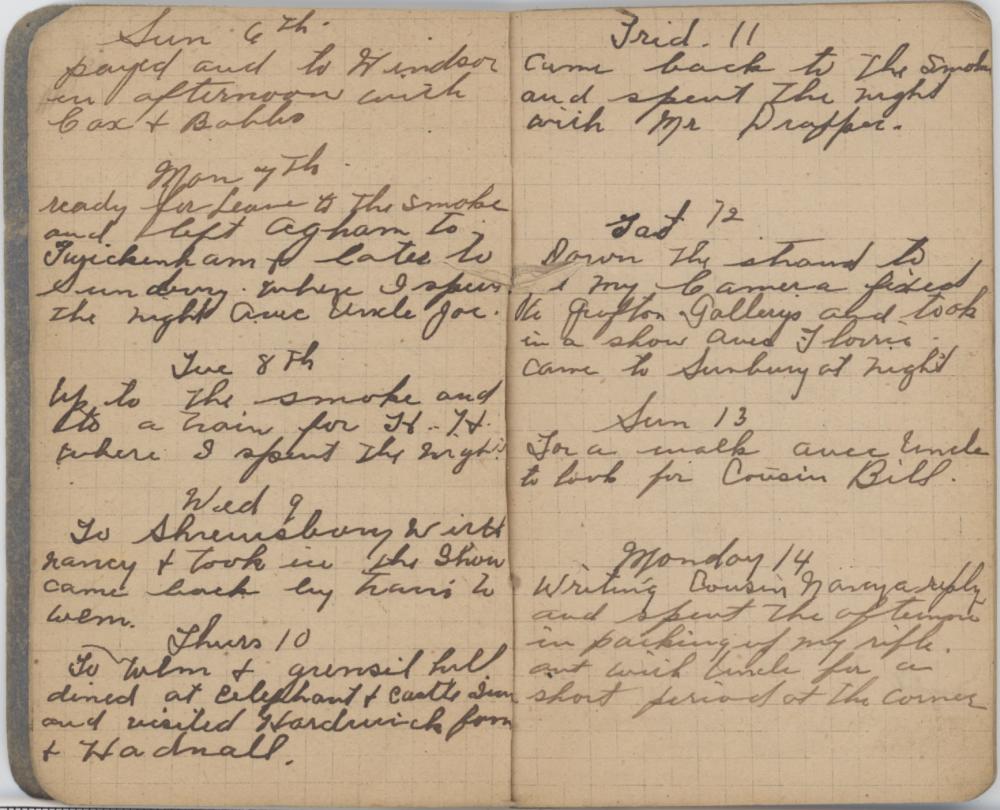 Sun 6th
payed and to Windsor
in afternoon with
Cox + Bobbs
Mon 7th
ready for Leave to The Smoke
and left Agham to
Twickenham & later to
Sunbury. where I spent
the night avec Uncle Joe.
Tue 8th
Up to the smoke and
a train for H. H.
where I spent the night
Wed 9
To Shrewsbury With
nancy + took in the Show
came back by train to
wem.
Thurs 10
To Wem + grensil hill
dined at Eelephant + Castle Inn
and visited Hardwick farm
+ Hadnall.
Frid. 11
Came back to The Smoke
and spent The night
with Mr Drapper.
Sat 12
Down The strand to
my Camera fixed
the Grafton Gallerys and took
in a show avec Florrie
came to Sunbury at night
Sun 13
For a walk avec Uncle
to look for Cousin Bill.
Monday 14
Writing Cousin Nancy a reply
and spent The afternoon
in packing of my rifle.
out with uncle for a
short period at the corner